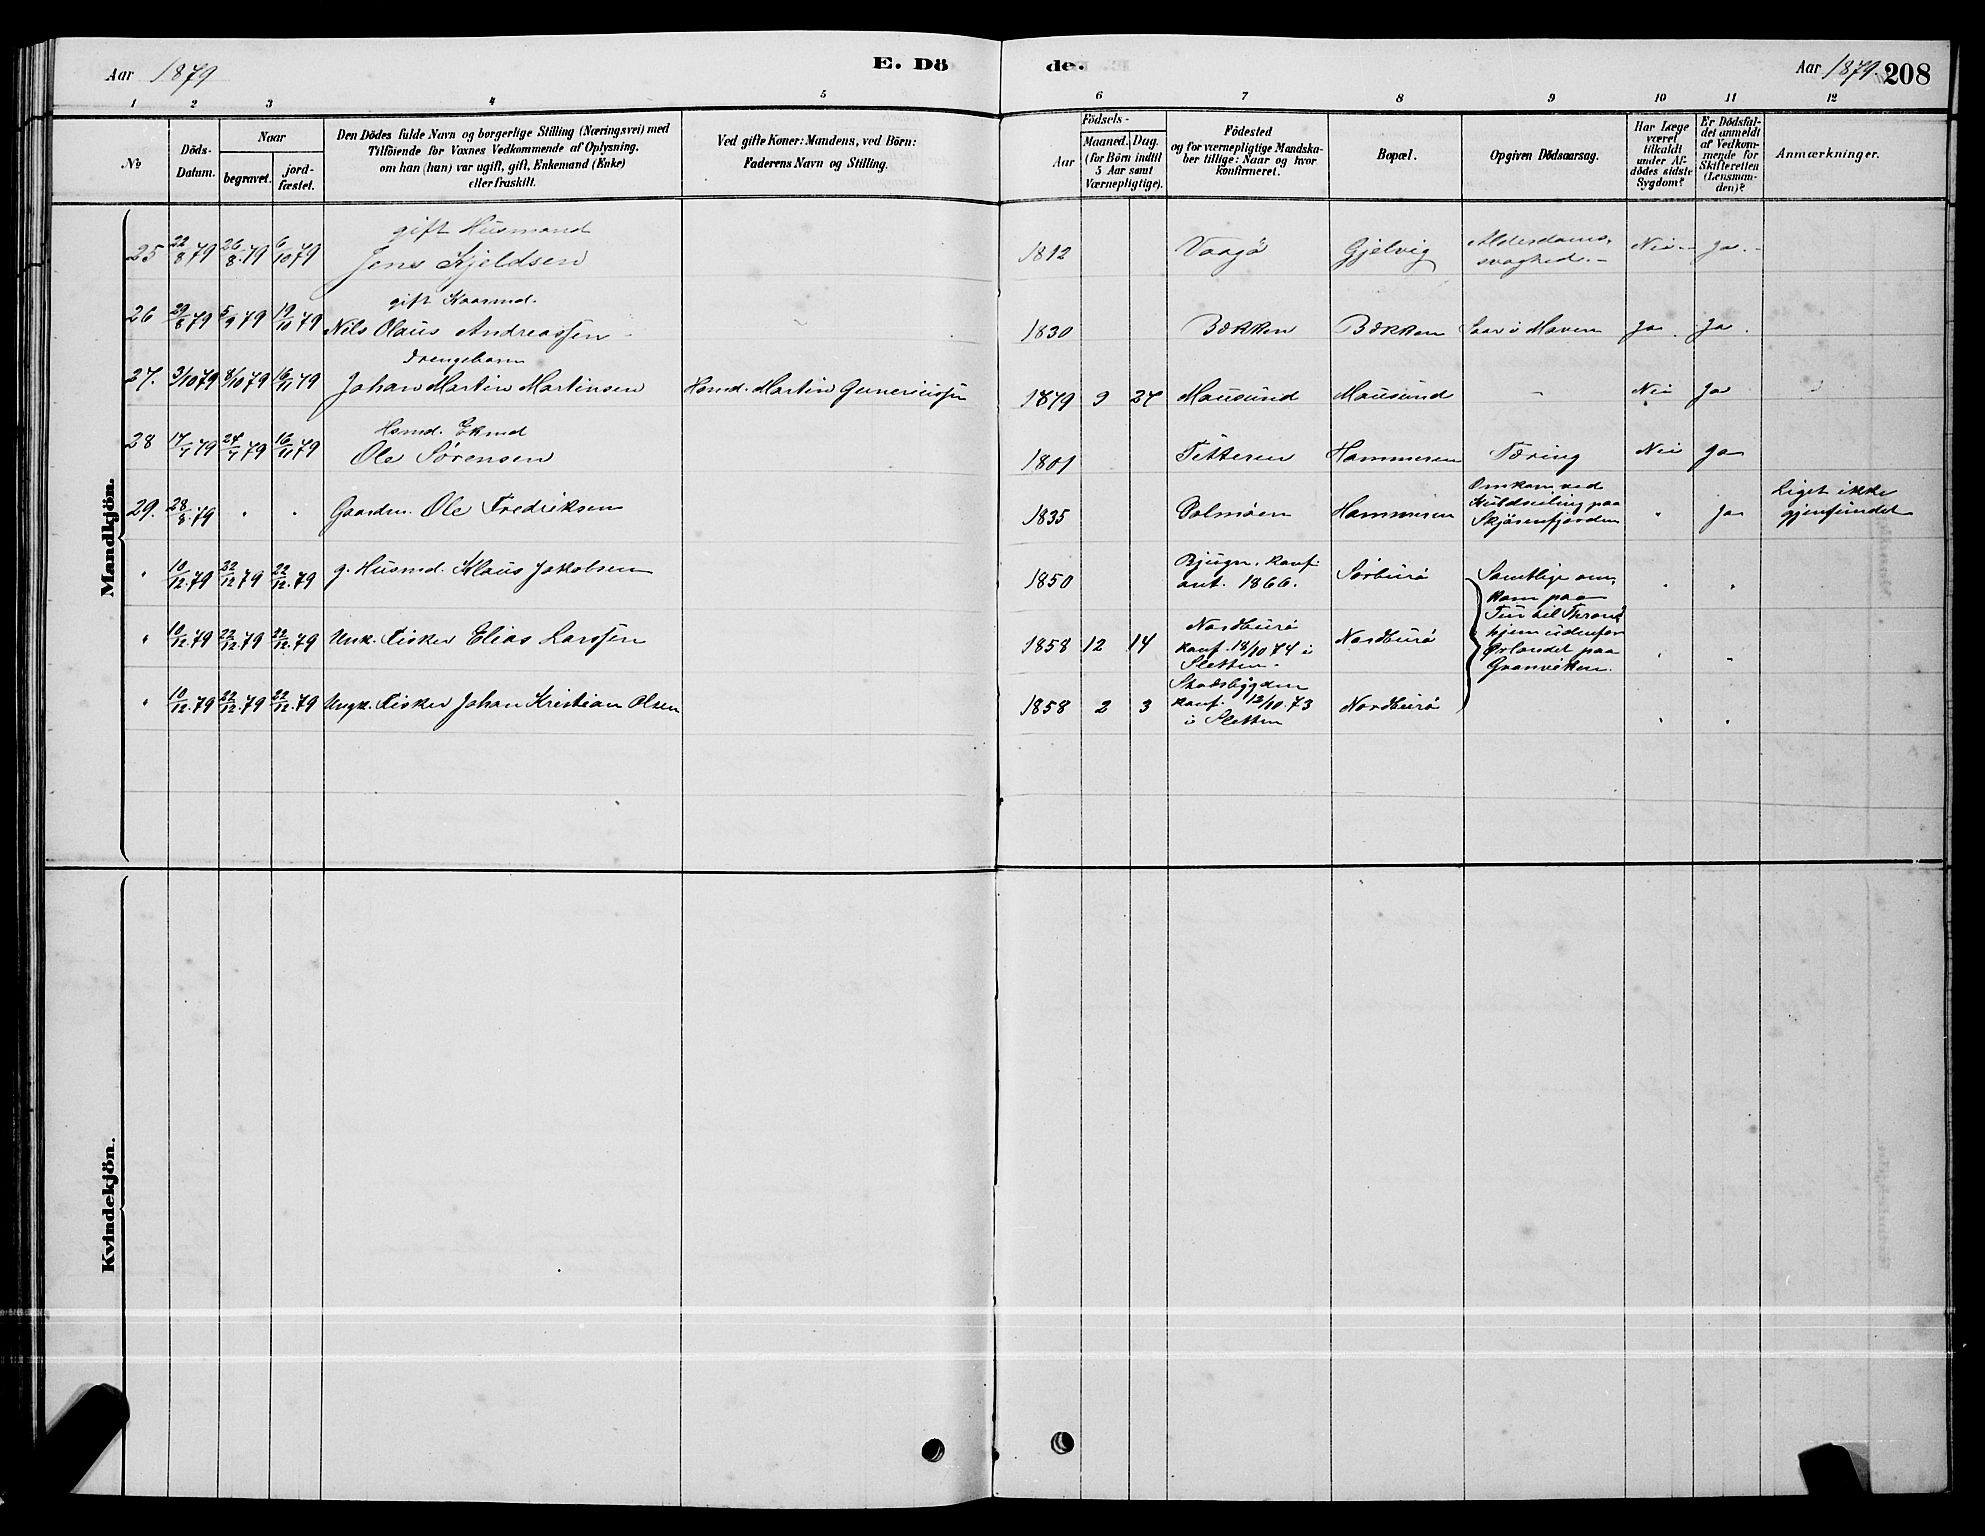 Aar 1879
E. Dö
de.
Aar 1879.
208
1 2 3 4 5 6 7 8 9 10 11 12
No
Döds-
Datum.
Naar
begravet.
jord-
fæstet.
Den Dödes fulde Navn og borgerlige Stilling (Næringsvei) med
Tilföiende for Voxnes Vedkommende af Oplysning,
om han (hun) var ugift, gift, Enkemand (Enke)
eller fraskilt.
Ved gifte Koner: Mandens, ved Börn:
Faderens Navn og Stilling.
Födsels-
Aar
Maaned. Dag.
(for Börn indtil
5 Aar samt
Værnepligtige).
Födested
og for værnepligtige Mandska-
ber tillige: Naar og hvor
konfirmeret.
Bopæl.
Opgiven Dödsaarsag.
Har Læge
været
tilkaldt
under Af-
dödes sidste
Sygdom?
Er Dödsfal-
det anmeldt
af Vedkom-
mende for
Skifteretten
(Lensman-
den)?
Anmærkninger.
Mandkjön.
gift Husmand
25 22/8 79 26/8 79 6/10 79 Jens Kjeldsen 1812 Vaagö Gjelvig Alderdoms-
svaghed.- Nei- Ja.-
gift Kaarmd.
26 29/8 79 5/9 79 19/10 79 Nils Olaus Andreassen 1830 Bekken Bekken Saar i Maven Ja. Ja.
Drengebarn
27. 3/10 79 8/10 79 16/11 79 Johan Martin Martinsen Hsmd. Martin 1879 9 27 Mausund Mausund - Nei Ja
Hsmd. Ekmd
28 17/7 79 24/7 79 16/11 79 Ole Sörensen 1801 Titteren Hammeren Tæring Nei Ja
29. 28/8 79 " " Gaardm. Ole Fredriksen 1835 Hammeren Omkom ved
Kuldseiling paa
Skjörenfjorden " Ja Liget ikke
gjenfundet
" 10/12 79 22/12 79 22/12 79 g. Husmd. Klaus Jakobsen 1850 Bjugn. konf.
ant. 1866. Sörburö Samtlige om-
kom paa
Tur til Thrond-
hjem udenfor
Örlandet paa
Granviken. " "
" 10/12 79 22/12 79 22/12 79 Unk. Fisker Elias Larssen 1858 12 14 Nordburö
konf. 18/10 74 i
Sletten. Nordburö " "
" 10/12 79 22/12 79 22/12 79 Ungk. Fisker Johan Kristian Olsen 1858 2 3 Stadsbygden
konf. 12/10 73
i Sletten Nordburö " "
Kvindekjön.